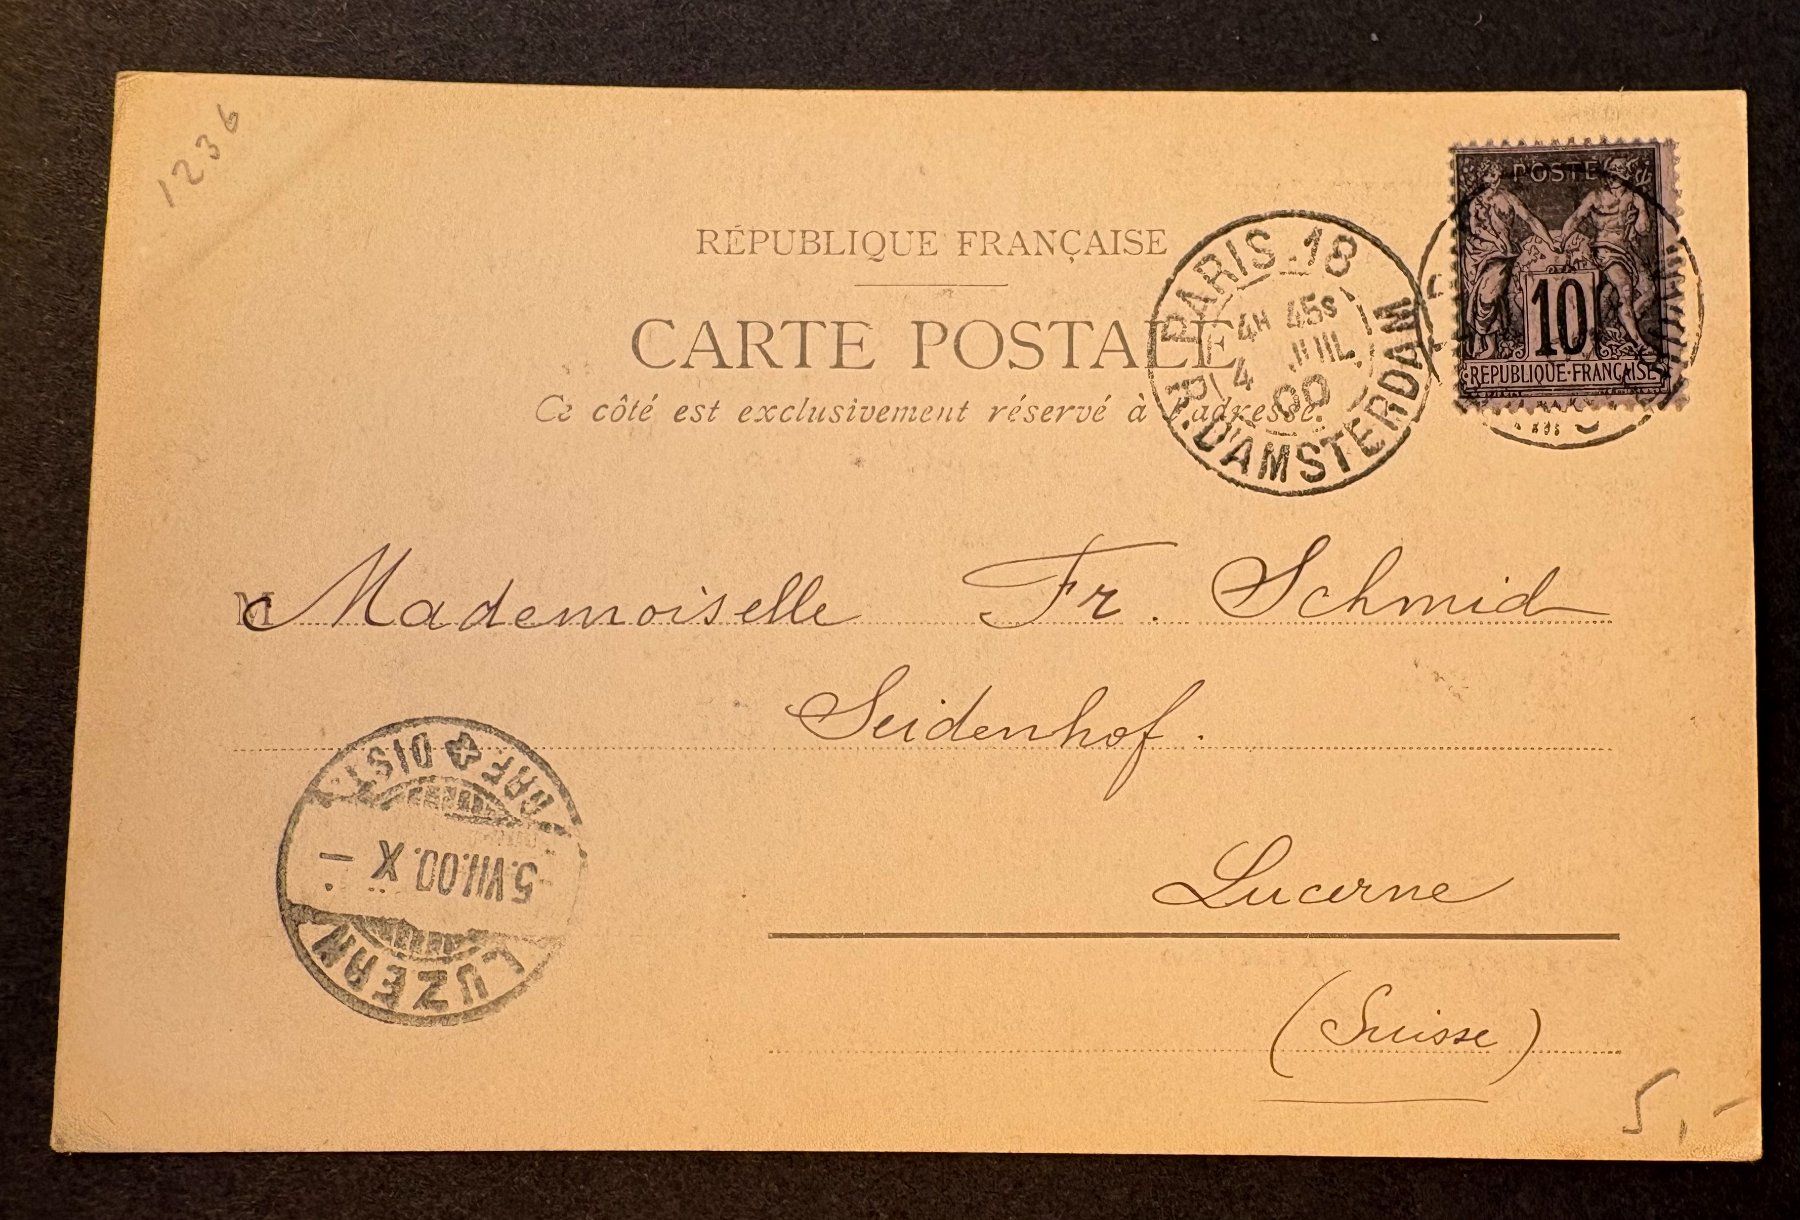 1236
POSTE
10
REPUBLIQUE·FRANÇAISE
RÉPUBLIQUE FRANÇAISE
CARTE POSTALE
Ce côté est exclusivement réservé à l'adresse.
PARIS. 18
4H 45S
4 JUIL
00
R. D'AMSTERDAM
M Mademoiselle Fr. Schmid
Seidenhof.
Lucerne
(Suisse)
LUZERN
5.VII.00. X -
BRF. DIST.
5,-